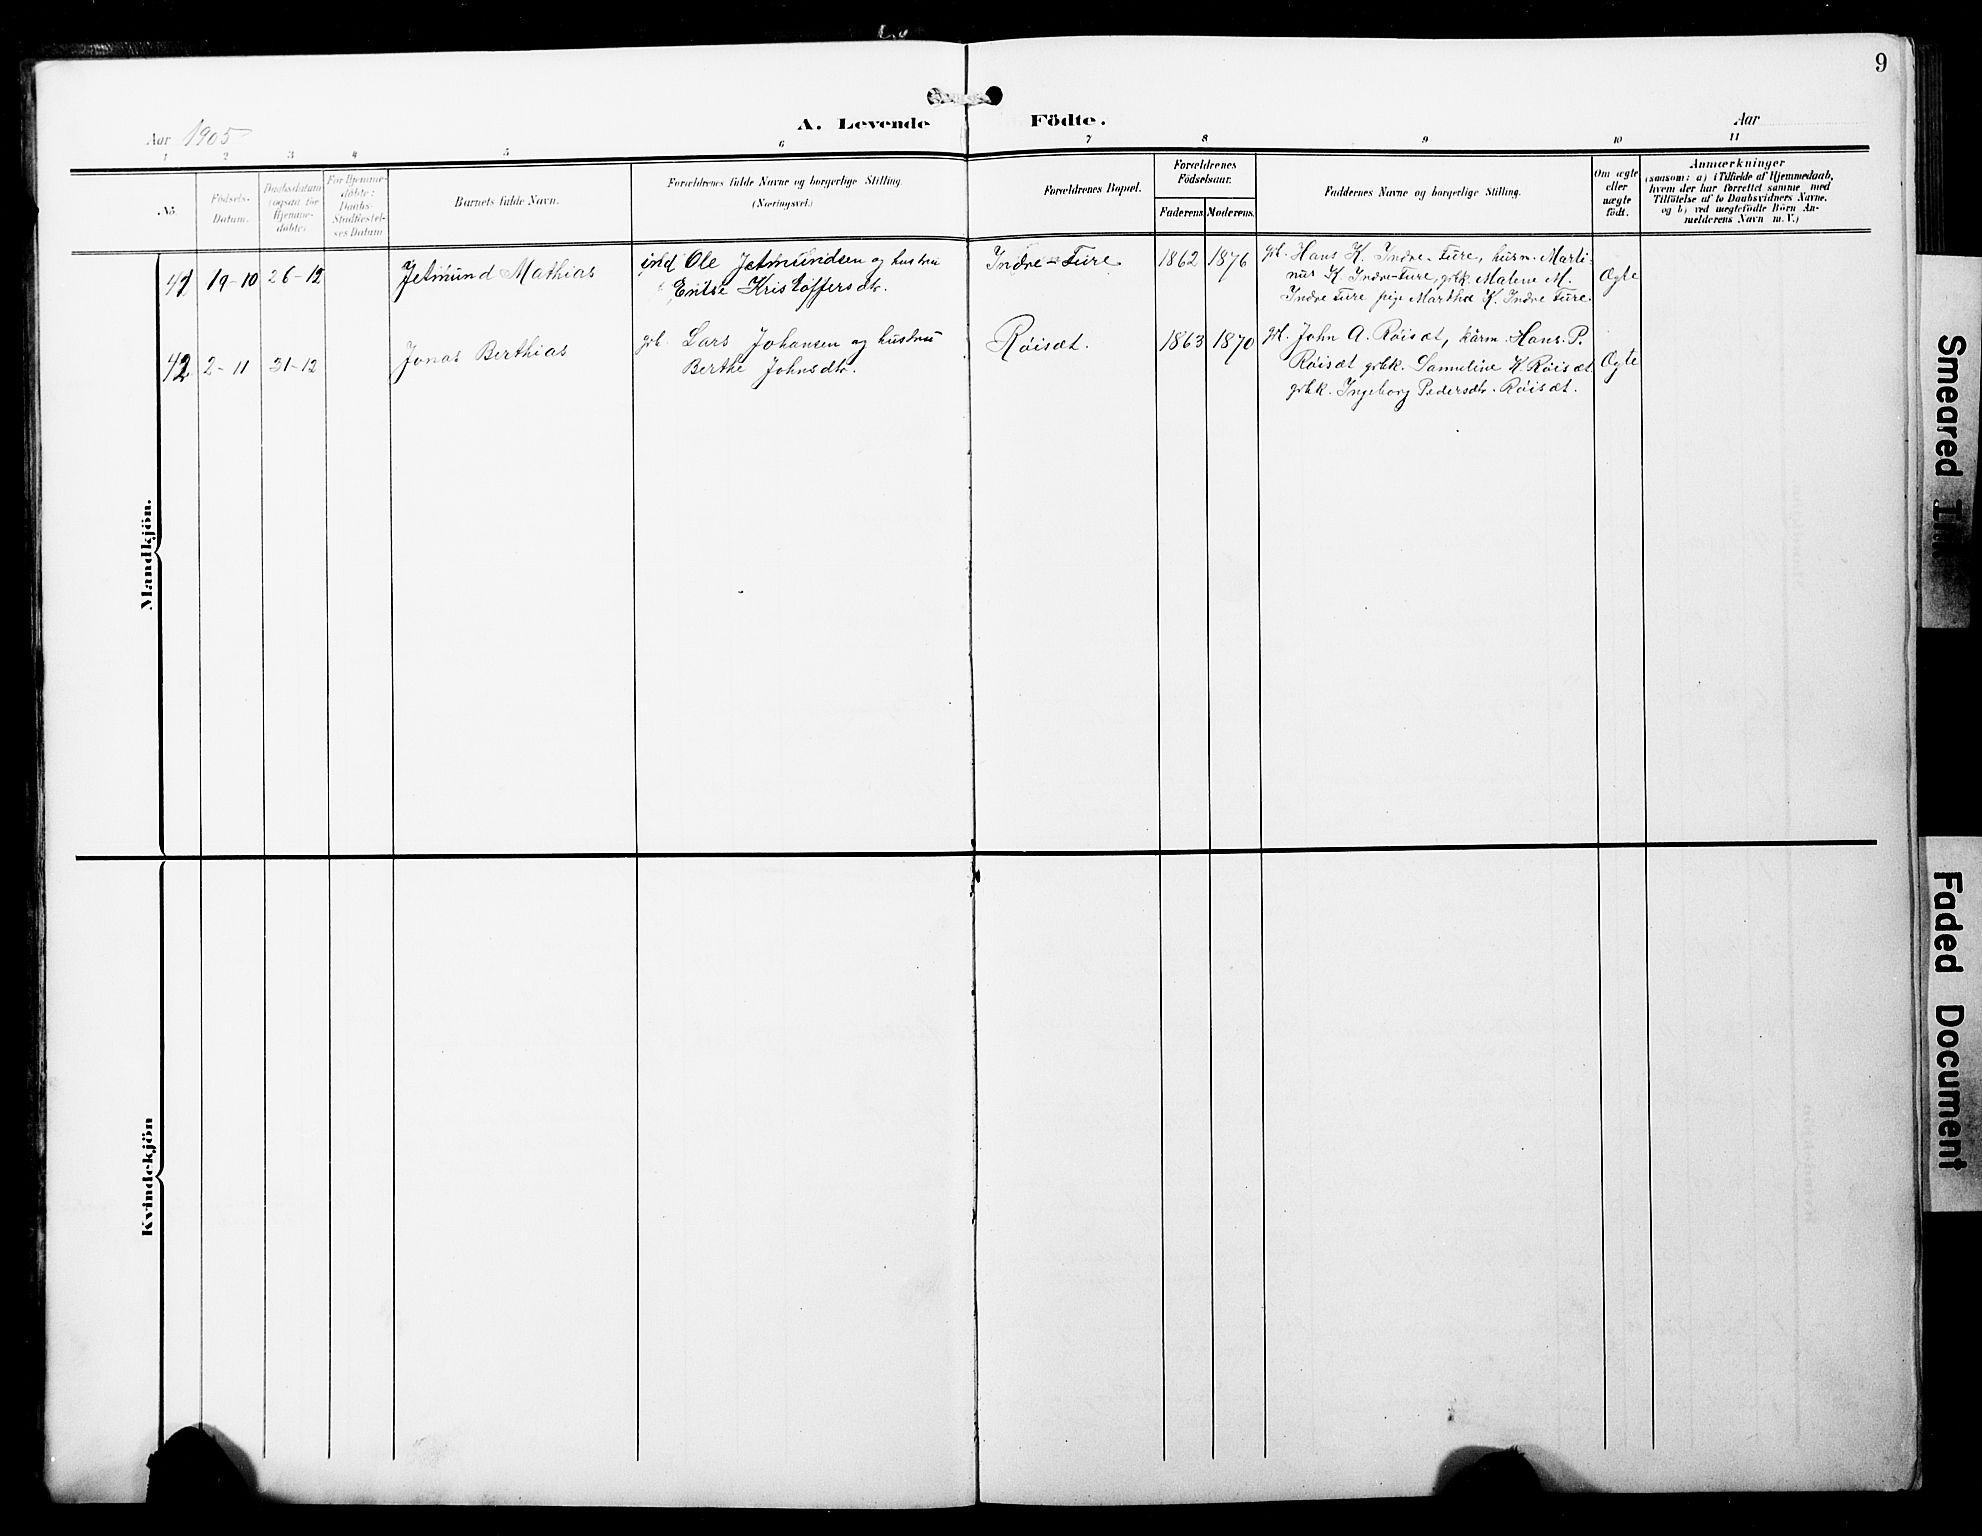 9
A. Levende Födte.
Aar 1905
Aar
1 2 3 4 5 6 7 8 9 10 11
No.
Födsels-
Datum.
Daabsdatum
(ogsaa for
Hjemme-
döbte.
For Hjemme-
döbte:
Daabs-
Stadfæstel-
ses Datum
Barnets fulde Navn.
Forældrenes fulde Navne og borgerlige Stilling.
(Næringsvei.)
Forældrenes Bopæl.
Forældrenes
Födselsaar.
Faderens. Moderens.
Faddernes Navne og borgerlige Stilling.
Om ægte
eller
uægte
födt.
Anmærkninger
(saasom: a) i Tilfælde af Hjemmedaab,
hvem der har forrettet samme med
Tilföielse af to Daabsvidners Navne.
og b) ved uægtefödte Börn An-
melderens Navn m. V.)
Mandkjön.
41 19-10 26-12 Jetmund Mathias
ind Ole Jetmundsen og hustru
Kristoffersdtr.
Indre-Fure 1862 1876
gbl. Hans K. Indre-Fure, husm. Marti-
nus K. Indre-Fure, gbk. Malene M.
Indre Fure pige Martha K. Indre Fure
Ægte
42 2-11 31-12 Jonas Berthias
gbr. Lars Johansen og hustru
Berthe Johnsdtr.
Röisæt. 1863 1870
gbl. John A. Röisæt, kårm. Hans P.
Röisæt gbk. Samueline K. Röisæt
gbk. Ingeborg Pedersdtr. Röisæt.
Ægte
Kvindekjön
Smeared Ink
Faded Document